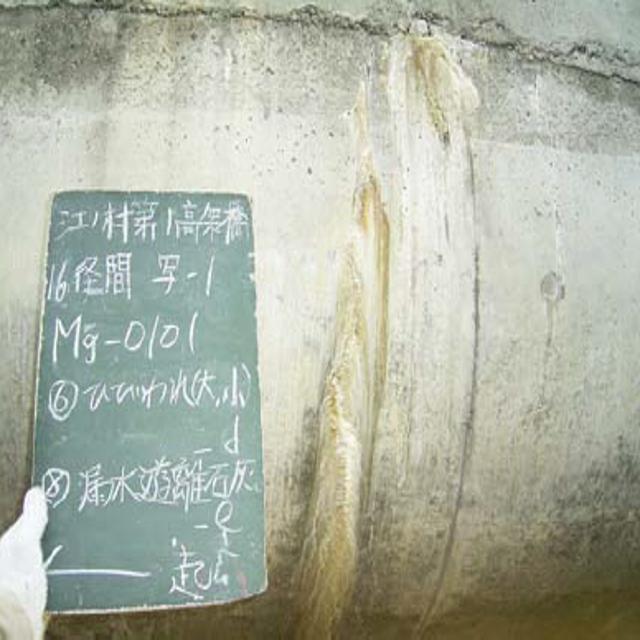 江ノ村第1高架橋
16径間 写-1
Mg-0101
⑥ひびわれ(大,小)
-d
⑧漏水遊離石灰
-e
起点